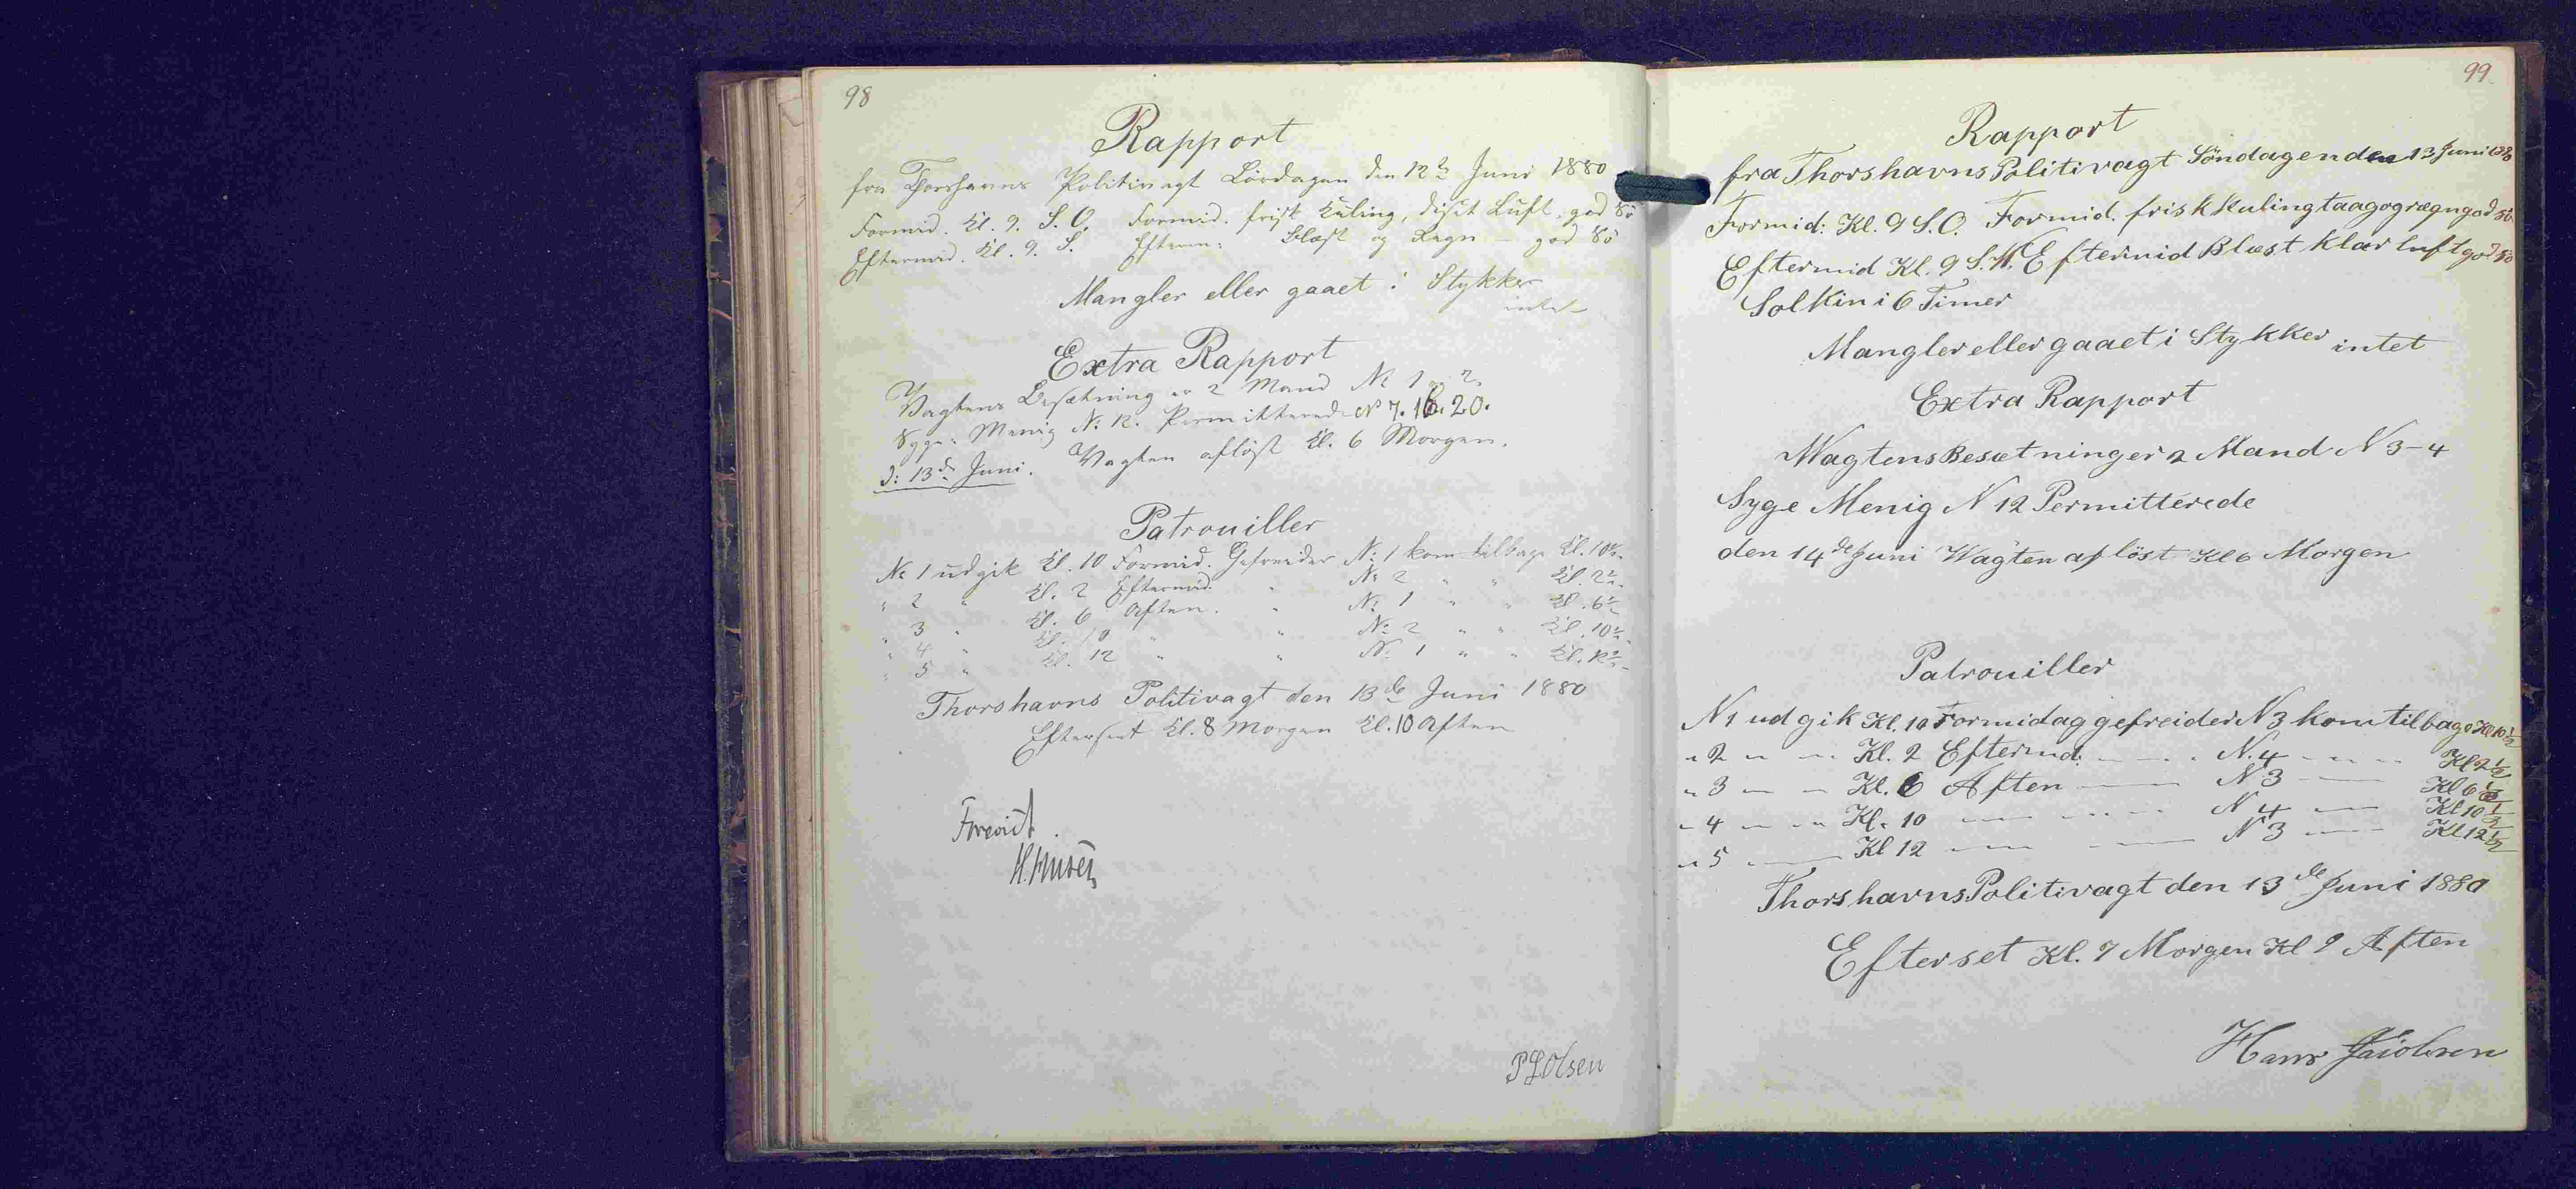 98
Rapport
fra Thorshavns Politivagt Lørdagen den 12te Juni 1880
Formid. Kl. 9. S. O. Formid. frisk Kuling, diset Luft, god Sö
Eftermid. Kl. 9. S. Efterm: Blæst og Regn – god Sö
Mangler eller gaaet i Stykker
intet
Extra Rapport
Vagtens Besætning er 2 Mand No 1 2.
Syge: Menig No 12. Permitterede No 7. 16. 20.
d: 13de Juni. Vagten aflöst Kl. 6 Morgen.
Patrouiller
No 1 udgik Kl. 10 Formid. Gefreider No 1 kom tilbage Kl. 10½.
" 2 " Kl. 2 Eftermid. " No 2 " " Kl. 2½.
" 3 " Kl. 6 Aften. " No 1 " " Kl. 6½
" 4 " Kl. 10 " " No 2 " " Kl. 10½.
" 5 " Kl. 12 " " No 1 " " Kl. 12½.
Thorshavns Politivagt den 13de Juni 1880
Efterseet Kl. 8 Morgen Kl. 10 Aften
Forevist
P Olsen
99.
Rapport
fra Thorshavns Politivagt Söndagen den 13 Juni 1880
Formid: Kl. 9 S. O. Formid. frisk Kuling taag og rægn god Sö
Eftermid Kl. 9 S. V. Eftermid Blæst Klar luft god Sö
Solskin i 6 Timer
Mangler eller gaaet i Stykker intet
Extra Rapport
Wagtens Besætning er 2 Mand N 3-4
Syge Menig N 12 Permitterede
den 14de Juni Wagten aflöst Kl 6 Morgen
Patrouiller
N 1 udgik Kl. 10 Formidag gefreider N 3 kom tilbage Kl 10½
" 2 " " Kl. 2 Eftermid: " " " N. 4 " " " Kl 2½
" 3 " " Kl. 6 Aften " N 3 " Kl 6½
" 4 " " Kl. 10 " " N 4 " Kl 10½
" 5 " Kl 12 " " N 3 " Kl 12½
Thorshavns Politivagt den 13de Juni 1880
Efterset Kl. 7 Morgen Kl 9 Aften
Hans Jacobsen